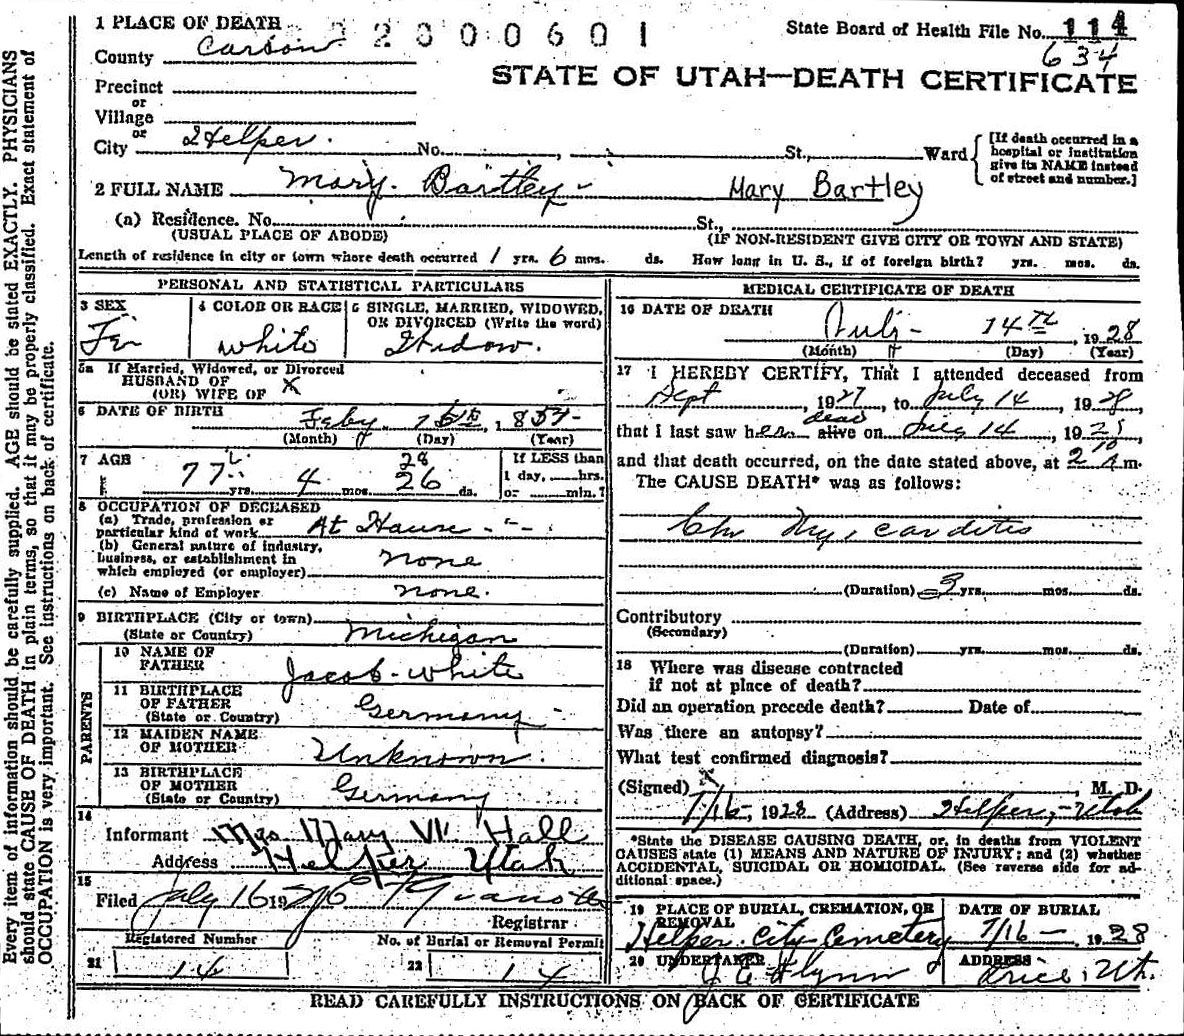 1 PLACE OF DEATH 2000601 State Board of Health File No. 114
County Carbon 634
STATE OF UTAH—DEATH CERTIFICATE
Precinct
or
Village
or
City Helper. No. , St., Ward [If death occurred in a hospital or institution give its NAME instead of street and number.]
2 FULL NAME Mary Bartley - Mary Bartley
(a) Residence. No. St.,
(USUAL PLACE OF ABODE) (IF NON-RESIDENT GIVE CITY OR TOWN AND STATE)
Length of residence in city or town where death occurred 1 yrs. 6 mos. ds. How long in U. S., if of foreign birth? yrs. mos. ds.
PERSONAL AND STATISTICAL PARTICULARS
3 SEX 4 COLOR OR RACE 5 SINGLE, MARRIED, WIDOWED,
OR DIVORCED (Write the word)
white Widow.
5a If Married, Widowed, or Divorced
HUSBAND OF
(OR) WIFE OF X
6 DATE OF BIRTH Feby. , 1
(Month) (Day) (Year)
7 AGE 28 If LESS than
77 yrs. 4 mos. 26 ds. 1 day, hrs.
or min.?
8 OCCUPATION OF DECEASED
(a) Trade, profession or
particular kind of work At House - -
(b) General nature of industry,
business, or establishment in
which employed (or employer) none
(c) Name of Employer none.
9 BIRTHPLACE (City or town)
(State or Country) Michigan
PARENTS
10 NAME OF
FATHER Jacob White
11 BIRTHPLACE
OF FATHER
(State or Country) Germany
12 MAIDEN NAME
OF MOTHER Unknown.
13 BIRTHPLACE
OF MOTHER
(State or Country) Germany
14
Informant Mrs Mary Hall
Address Helper Utah
15
Filed July 16 19
Registrar
Registered Number No. of Burial or Removal Permit
21 14 22 14
MEDICAL CERTIFICATE OF DEATH
16 DATE OF DEATH
July - 14th , 1928
(Month) (Day) (Year)
17 I HEREBY CERTIFY, That I attended deceased from
Sept , 1927, to July 14 , 1928,
dead
that I last saw her alive on July 14 , 1928,
and that death occurred, on the date stated above, at 2 A m.
The CAUSE DEATH* was as follows:
Chr Myocarditis
(Duration) 3 yrs. mos. ds.
Contributory
(Secondary)
(Duration) yrs. mos. ds.
18 Where was disease contracted
if not at place of death?
Did an operation precede death? Date of
Was there an autopsy?
What test confirmed diagnosis?
(Signed) X , M. D.
7/16, 1928 (Address) Helper, Utah
*State the DISEASE CAUSING DEATH, or, in deaths from VIOLENT
CAUSES state (1) MEANS AND NATURE OF INJURY; and (2) whether
ACCIDENTAL, SUICIDAL OR HOMICIDAL. (See reverse side for ad-
ditional space.)
19 PLACE OF BURIAL, CREMATION, OR
REMOVAL DATE OF BURIAL
Helper City Cemetery 7/16 - 1928
20 UNDERTAKER ADDRESS
J E Flynn Price, Ut.
READ CAREFULLY INSTRUCTIONS ON BACK OF CERTIFICATE
Every item of information should be carefully supplied. AGE should be stated EXACTLY. PHYSICIANS
should state CAUSE OF DEATH in plain terms, so that it may be properly classified. Exact statement of
OCCUPATION is very important. See instructions on back of certificate.